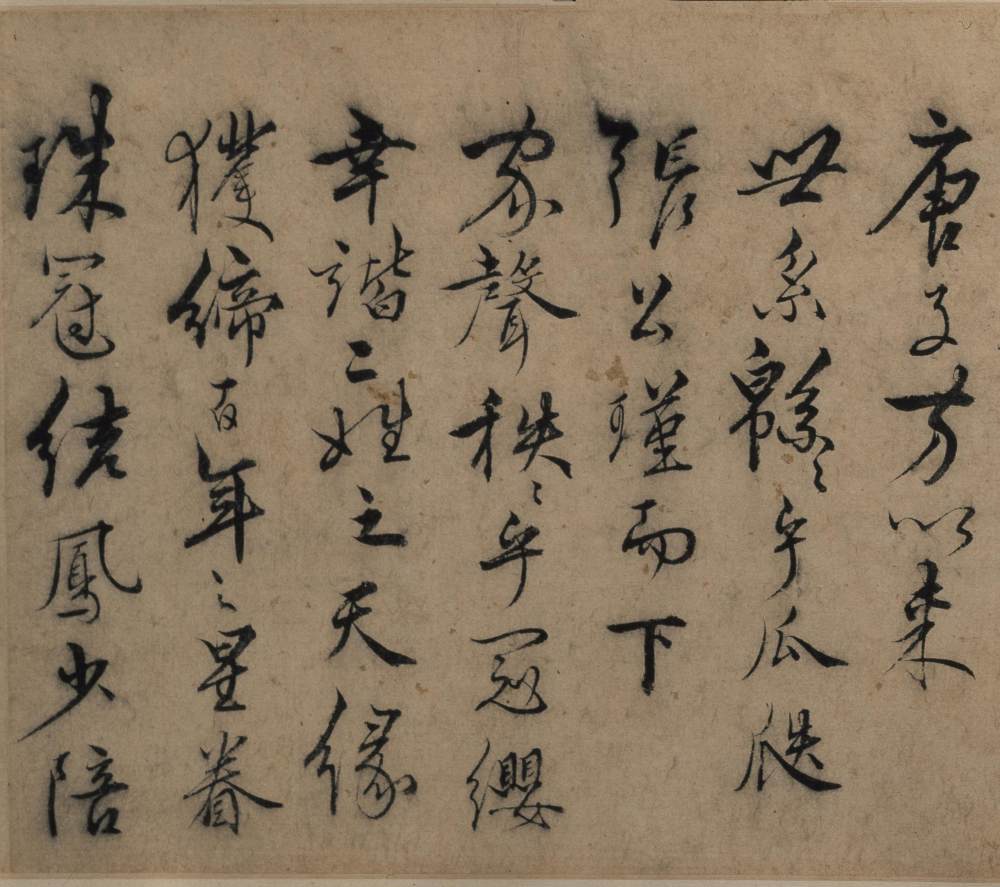 唐子方以來
世系緜々乎瓜瓞
張公瑾而下
家聲秩々乎冠纓
幸諧二姓之天緣
獲締百年之星眷
珠冠結鳳少陪